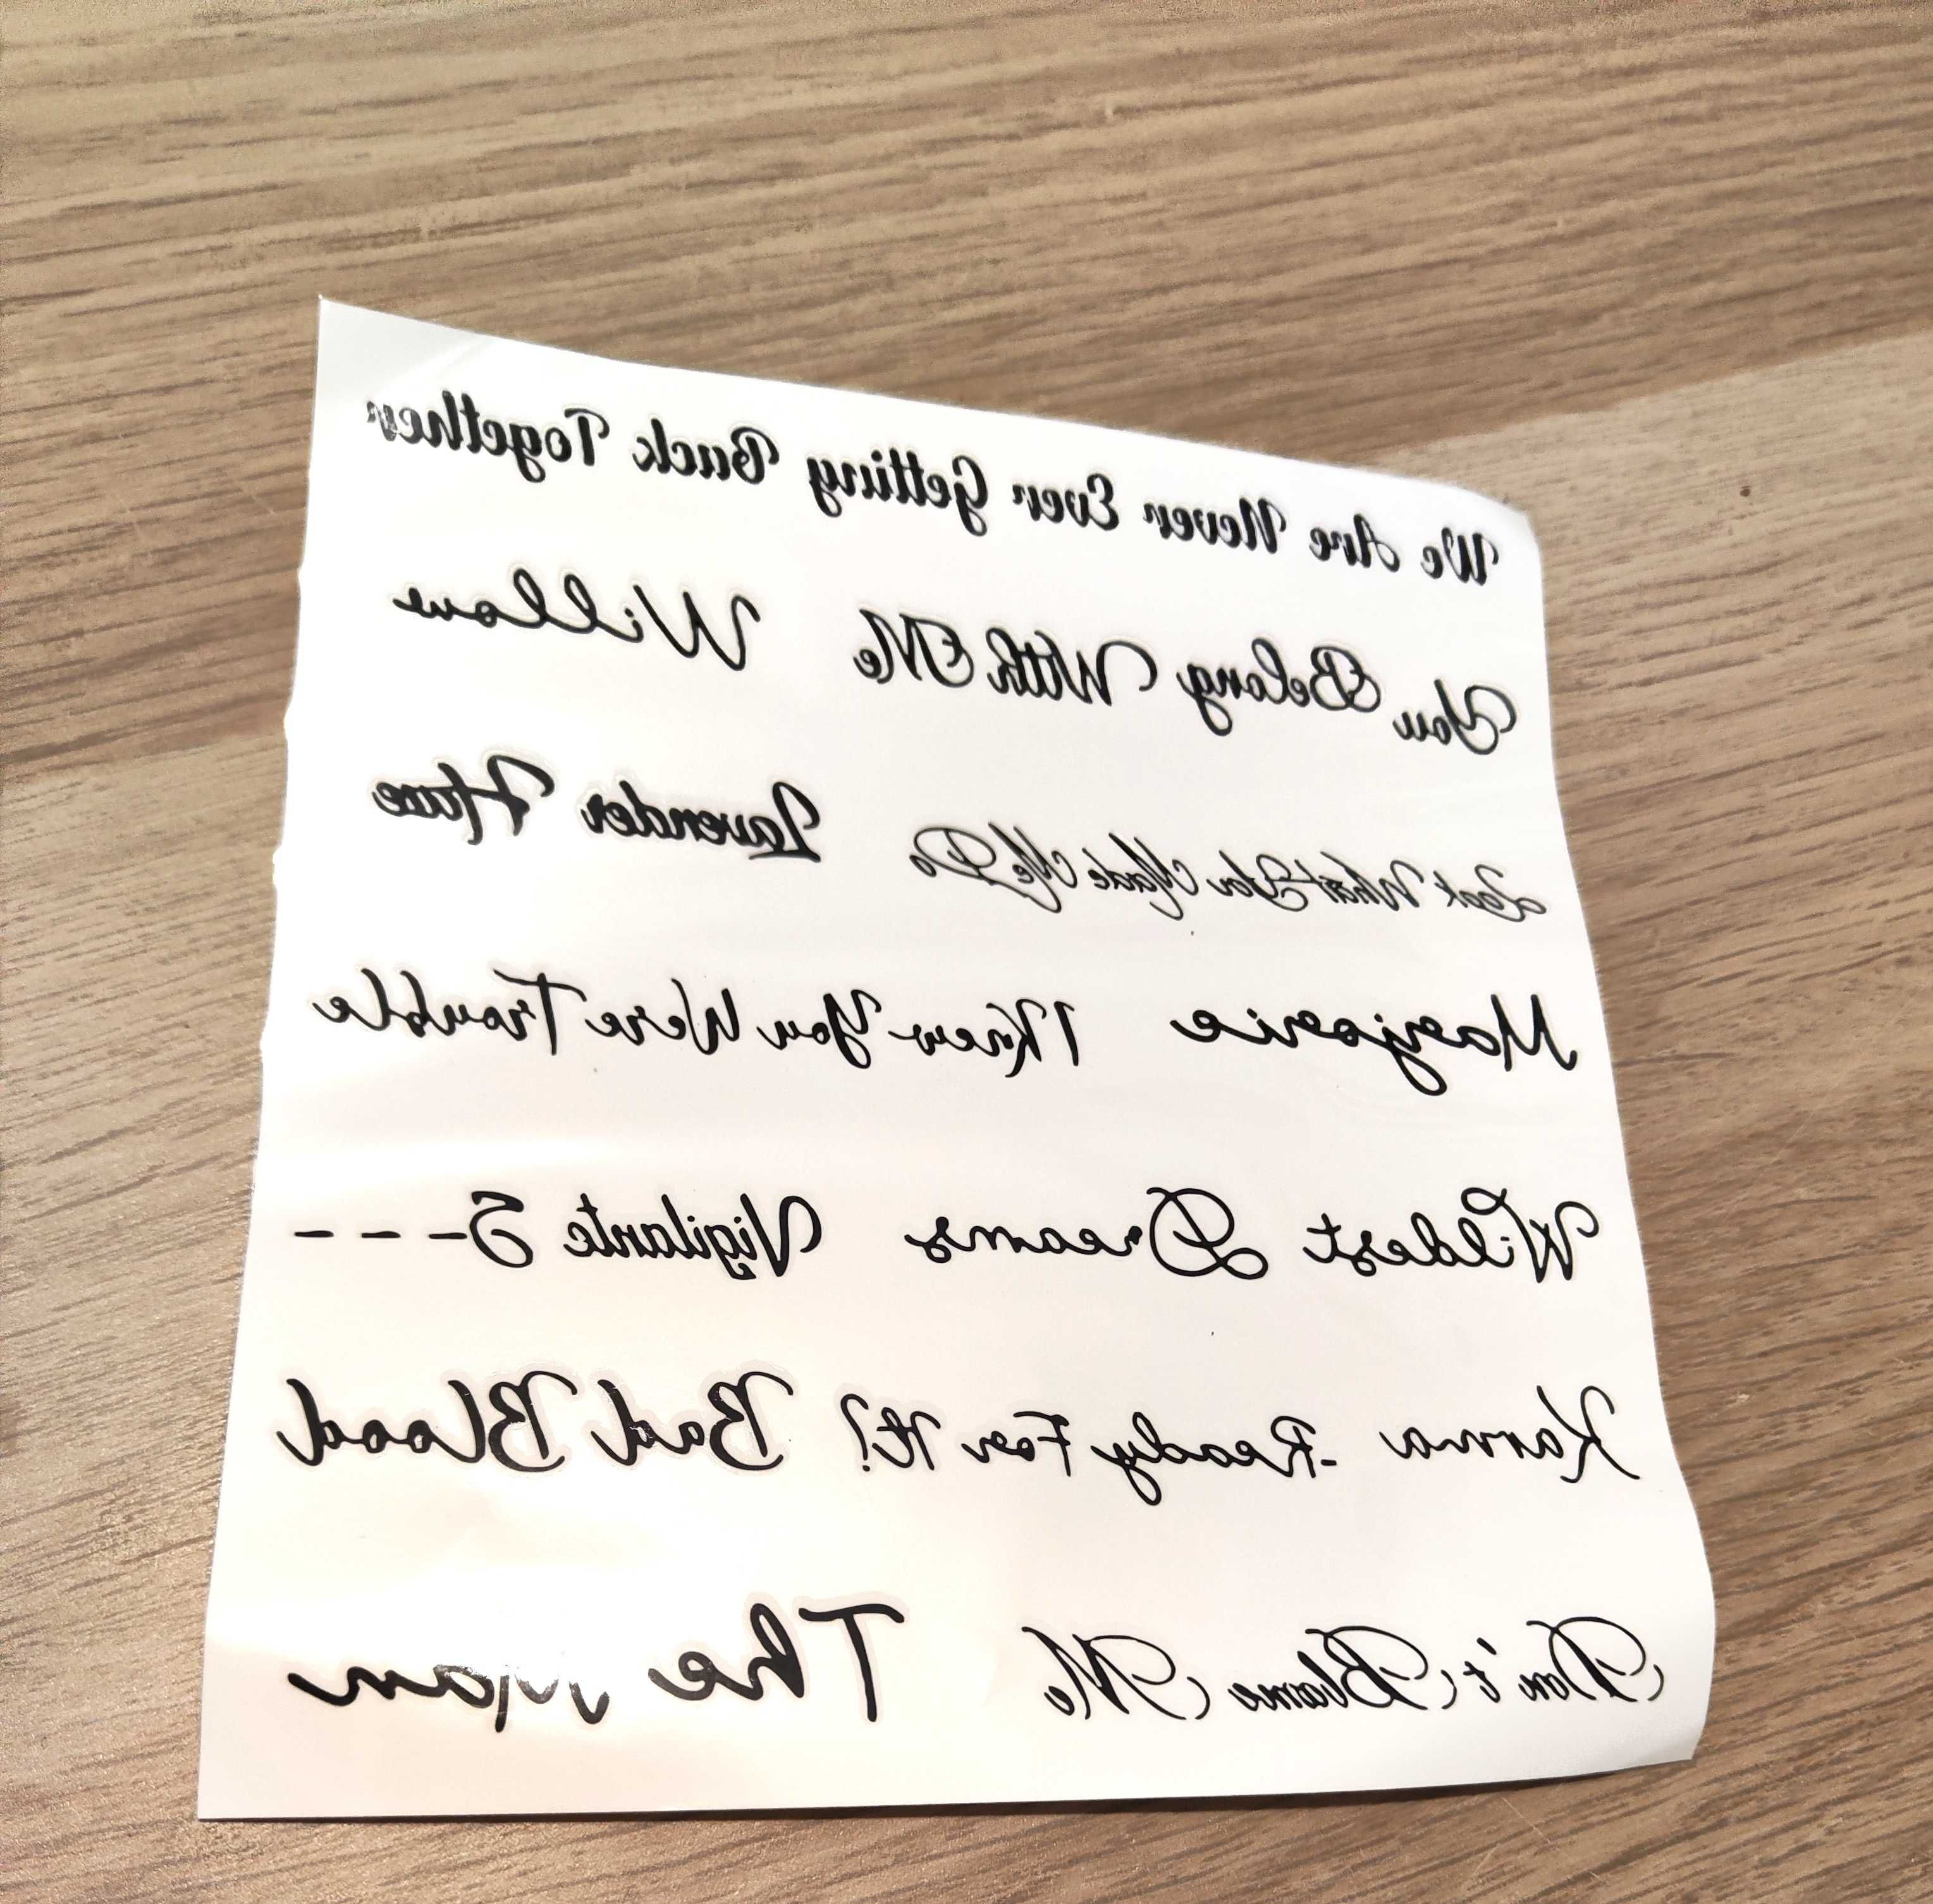 We Are Never Ever Getting Back Together
You Belong With Me Willow
Look What You Made Me Do Lavender Haze
Marjorie I Knew You Were Trouble
Wildest Dreams Vigilante S----
Karma -Ready For It? Bad Blood
Don't Blame Me The Man